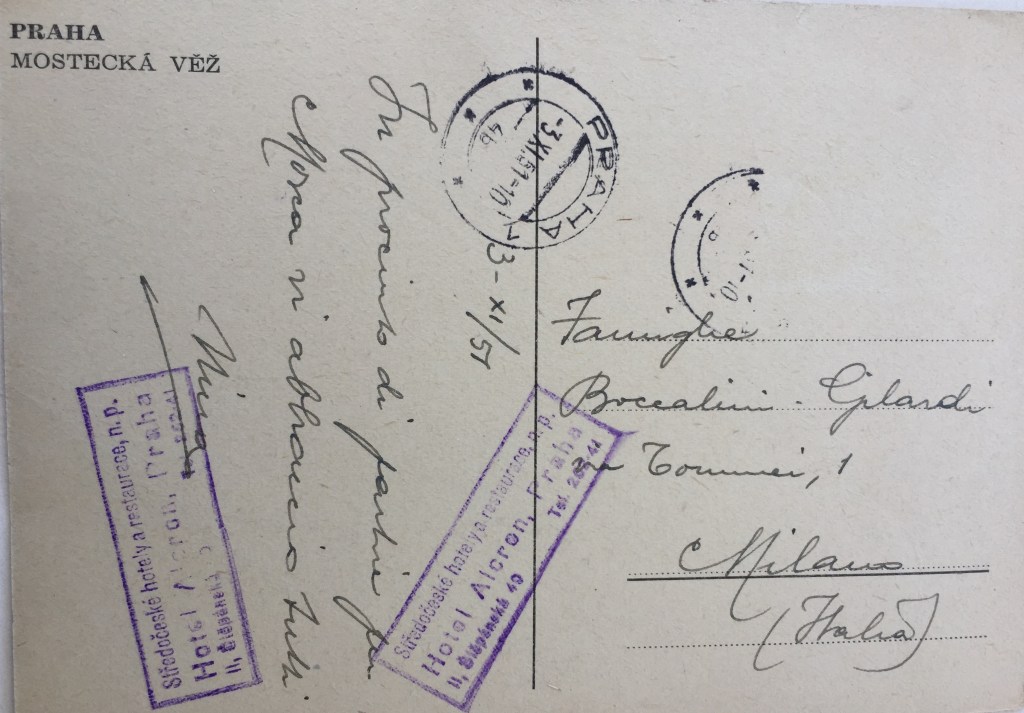 PRAHA
MOSTECKÁ VĚŽ
3-XI/51
In procinto di partire per
Mosca vi abbraccio tutti
PRAHA 1
-3.XI.51-10
4b
Famiglie
Boccalini - Gilardi
via Tommei, 1
Milano
(Italia)
Středočeské hotely a restaurace, n. p.
Hotel Alcron, Praha
II, Štěpánská 40
Středočeské hotely a restaurace, n. p.
Hotel Alcron, Praha
II, Štěpánská 40